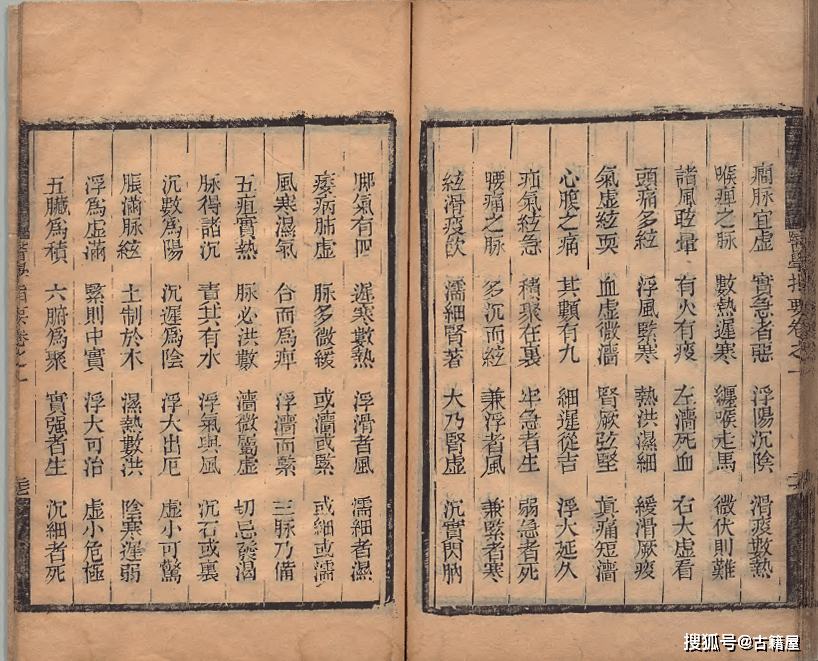 癇脉宜虛 實急者惡 浮陽沉陰 滑痰數熱
喉痺之脉 數熱遲寒 纏喉走馬 微伏則難
諸風眩暈 有火有痰 左濇死血 右大虛看
頭痛多絃 浮風緊寒 熱洪濕細 緩滑厥痰
氣虛絃耎 血虛微濇 腎厥弦堅 眞痛短濇
心腹之痛 其類有九 細遲從吉 浮大延久
疝氣絃急 積聚在裏 牢急者生 弱急者死
腰痛之脉 多沉而絃 兼浮者風 兼緊者寒
絃滑痰飲 濡細腎著 大乃腎虛 沉實閃肭
脚氣有四 遲寒數熱 浮滑者風 濡細者濕
痿病肺虛 脉多微緩 或濇或緊 或細或濡
風寒濕氣 合而爲痺 浮濇而緊 三脉乃備
五疸實熱 脉必洪數 濇微屬虛 切忌發渴
脉得諸沉 責其有水 浮氣與風 沉石或裏
沉數爲陽 沉遲爲陰 浮大出厄 虛小可驚
脹滿脉絃 土制於木 濕熱數洪 陰寒遲弱
浮爲虛滿 緊則中實 浮大可治 虛小危極
五臟爲積 六腑爲聚 實强者生 沉細者死
醫學指要卷之一
搜狐号@古籍屋